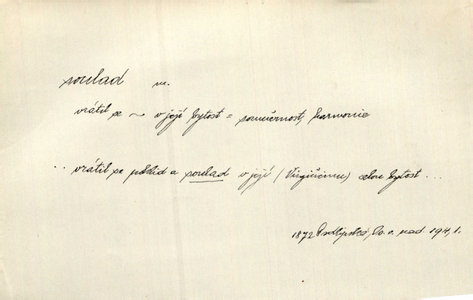 soulad m.
vrátil se ~ v její bytost = souměrnost, harmonie
.. vrátil se poklid a soulad v její (Virginiinu) celou bytost ...
1872 Podlipská, 1, 1.